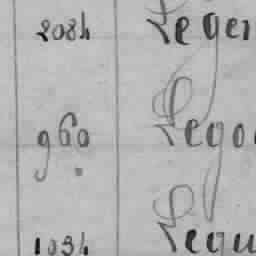 2084 Leger
960 Lego
1034 Lequ